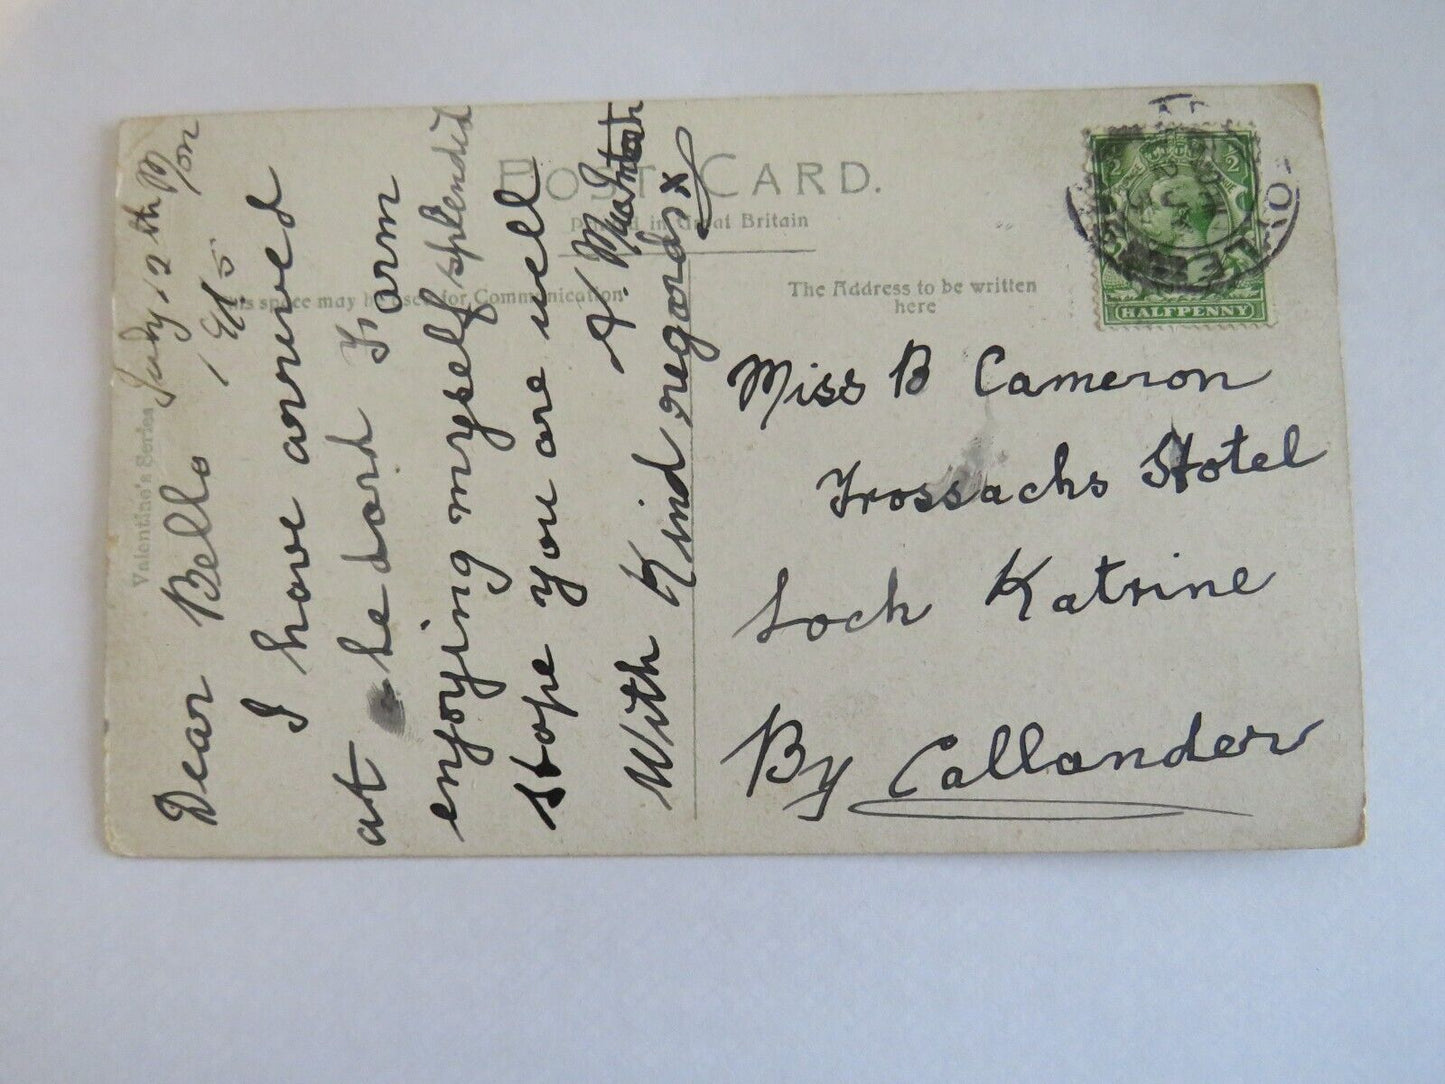 POST CARD.
Printed in Great Britain
This space may be used for Communication
The Address to be written
here
Valentine's Series
HALFPENNY
July 12th Mon
Dear Bella
I have arrived
at
enjoying myself splendid
Hope you are well
With Kind regards x
Miss B Cameron
Trossachs Hotel
Loch Katrine
By Callander